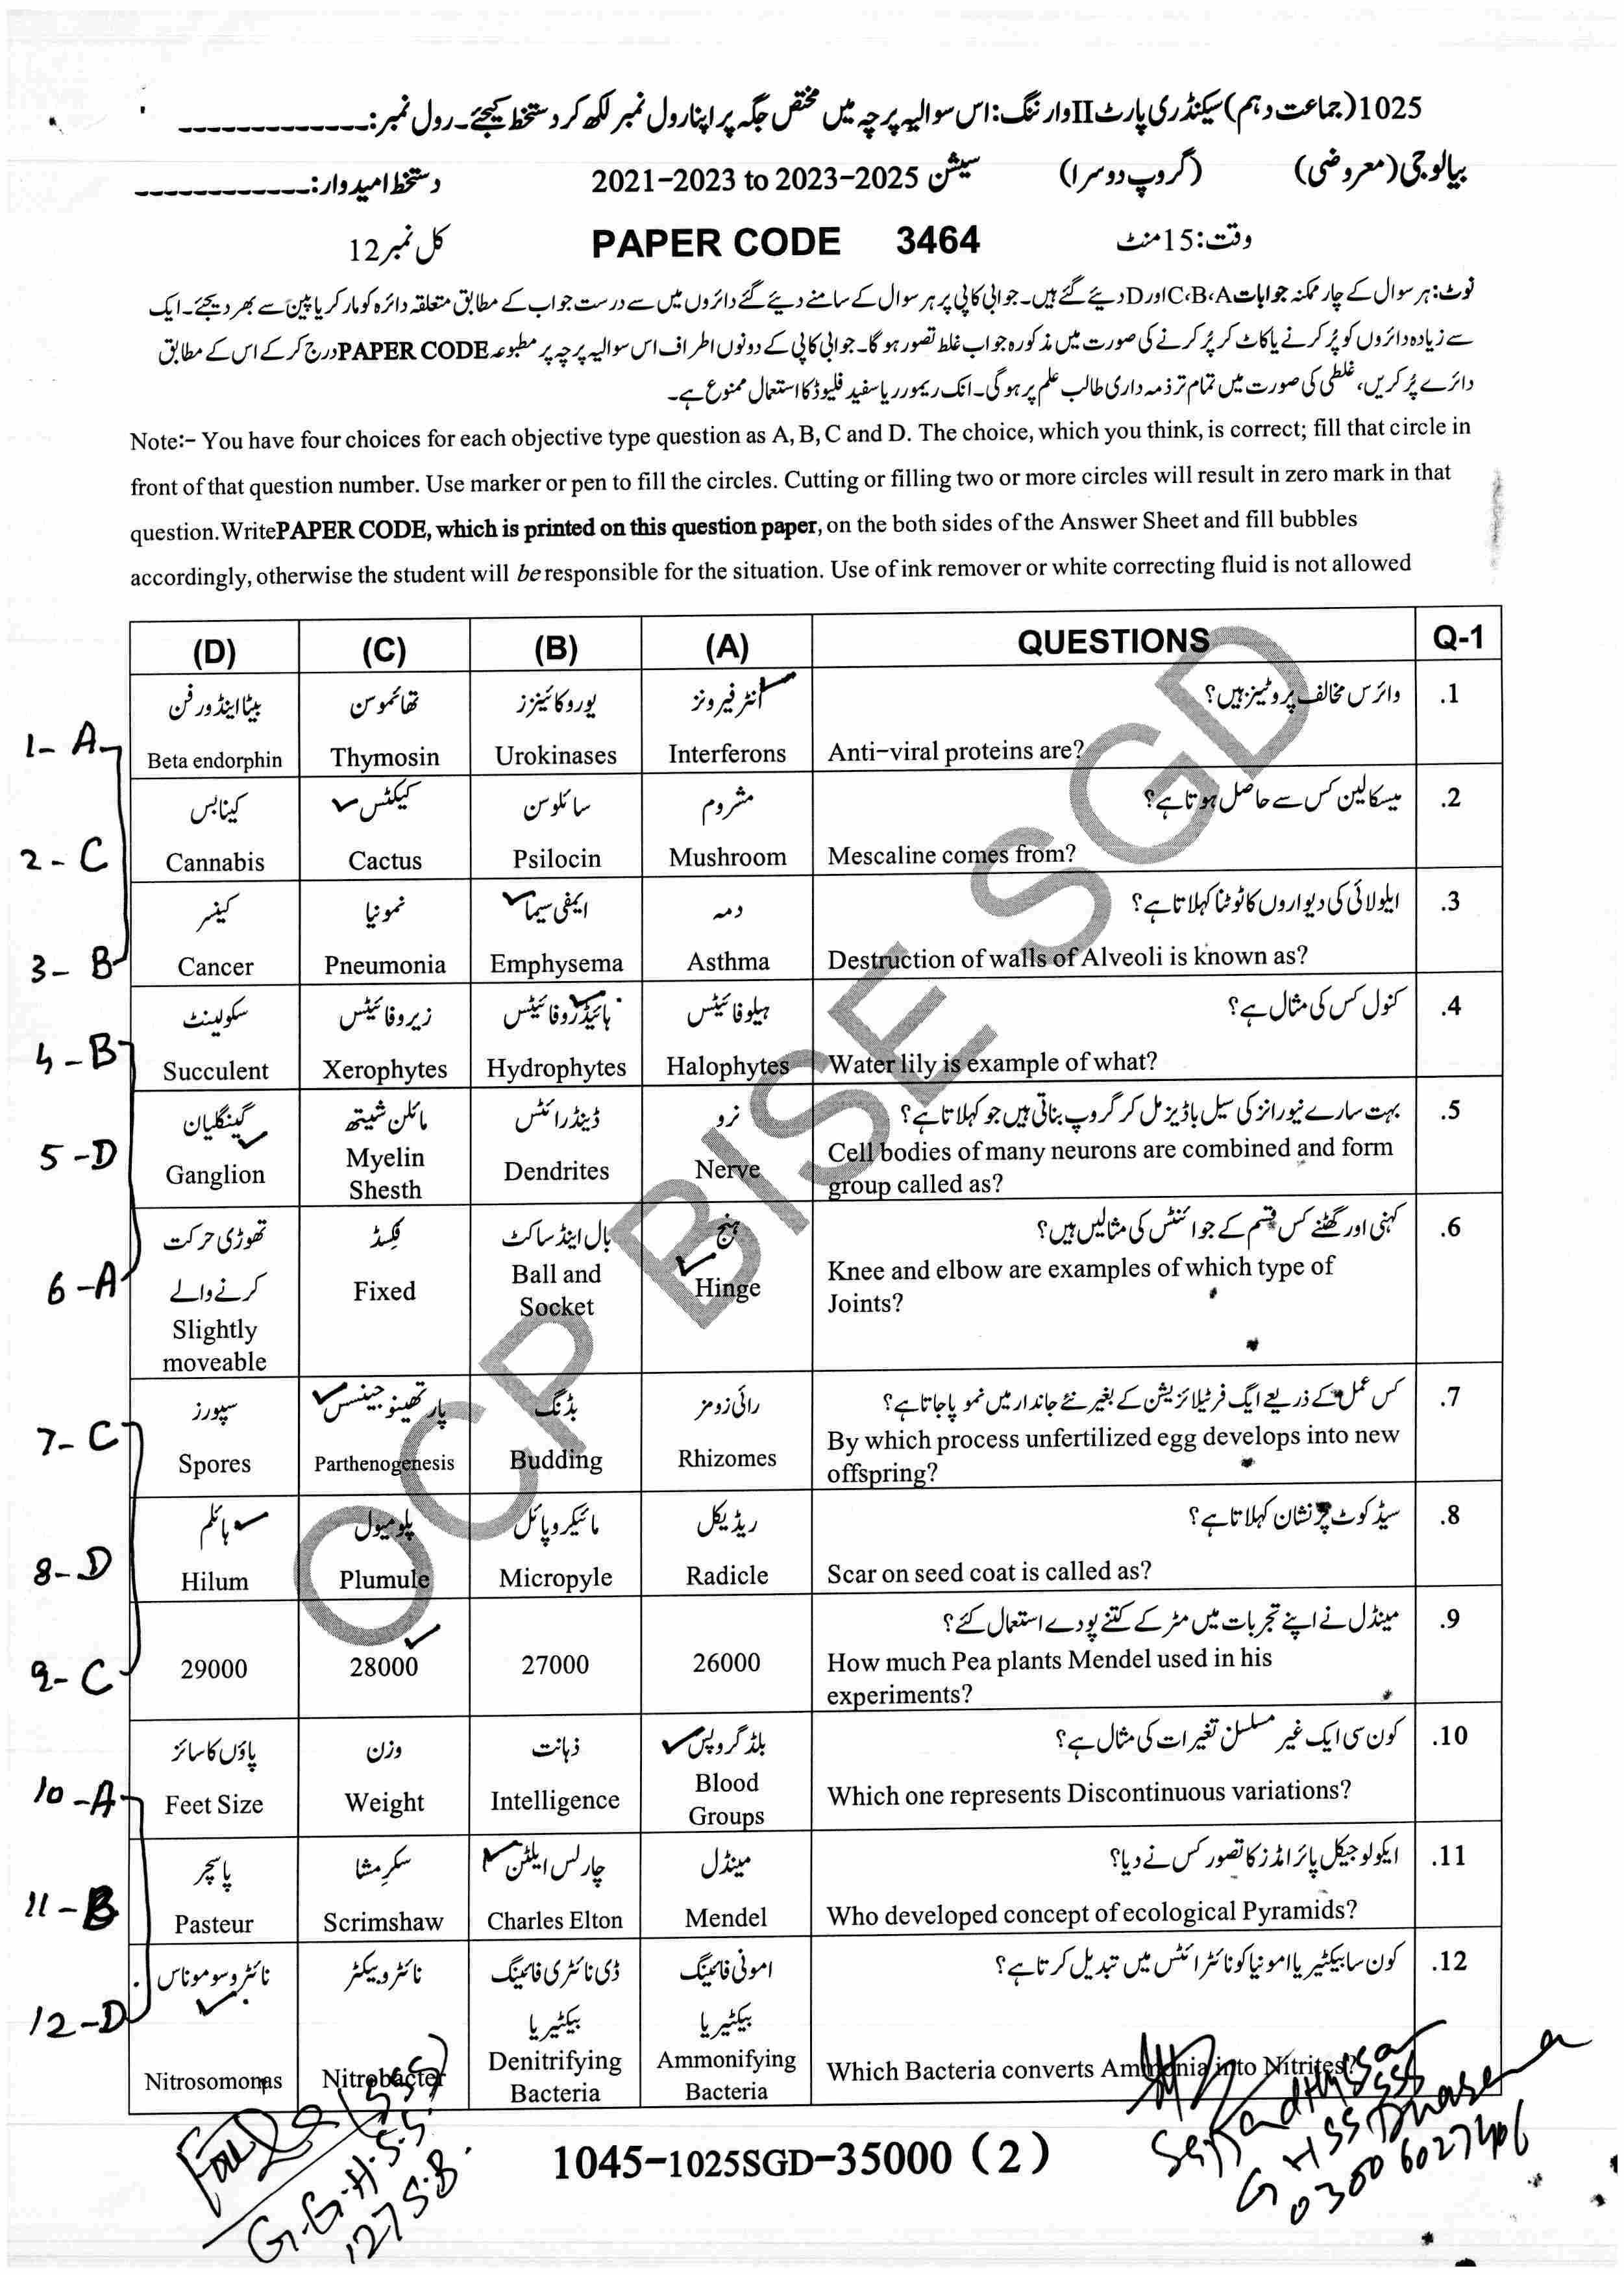 1025(جماعت دہم) سیکنڈری پارٹ II وارننگ: اس سوالیہ پرچہ میں مختص جگہ پر اپنا رول نمبر لکھ کر دستخط کیجئے۔ رول نمبر:-------------
بیالوجی (معروضی) (گروپ دوسرا) سیشن 2021-2023 to 2023-2025 دستخط امیدوار:------------
وقت: 15 منٹ PAPER CODE 3464 کل نمبر 12
نوٹ: ہر سوال کے چار ممکنہ جوابات A،B،C اور D دیئے گئے ہیں۔ جوابی کاپی پر ہر سوال کے سامنے دیئے گئے دائروں میں سے درست جواب کے مطابق متعلقہ دائرہ کو مارکر یا پین سے بھر دیجئے۔ ایک
سے زیادہ دائروں کو پُر کرنے یا کاٹ کر پُر کرنے کی صورت میں مذکورہ جواب غلط تصور ہو گا۔ جوابی کاپی کے دونوں اطراف اس سوالیہ پرچہ پر مطبوعہ PAPER CODE درج کر کے اس کے مطابق
دائرے پُر کریں، غلطی کی صورت میں تمام تر ذمہ داری طالب علم پر ہو گی۔ انک ریموور یا سفید فلیوڈ کا استعمال ممنوع ہے۔
Note:- You have four choices for each objective type question as A, B, C and D. The choice, which you think, is correct; fill that circle in
front of that question number. Use marker or pen to fill the circles. Cutting or filling two or more circles will result in zero mark in that
question.WritePAPER CODE, which is printed on this question paper, on the both sides of the Answer Sheet and fill bubbles
accordingly, otherwise the student will be responsible for the situation. Use of ink remover or white correcting fluid is not allowed
(D) (C) (B) (A) QUESTIONS Q-1
بیٹا اینڈورفن تھائموسن یوروکائینزز انٹرفیرونز وائرس مخالف پروٹینز ہیں؟ .1
1- A Beta endorphin Thymosin Urokinases Interferons Anti-viral proteins are?
کینابس کیکٹس سائلوسن مشروم میسکالین کس سے حاصل ہوتا ہے؟ .2
2- C Cannabis Cactus Psilocin Mushroom Mescaline comes from?
کینسر نمونیا ایمفی سیما دمہ ایلولائی کی دیواروں کا ٹوٹنا کہلاتا ہے؟ .3
3- B Cancer Pneumonia Emphysema Asthma Destruction of walls of Alveoli is known as?
سکولینٹ زیروفائیٹس ہائیڈروفائیٹس ہیلوفائیٹس کنول کس کی مثال ہے؟ .4
4-B Succulent Xerophytes Hydrophytes Halophytes Water lily is example of what?
گینگلیان مائلن شیتھ ڈینڈرائٹس نرو بہت سارے نیورانز کی سیل باڈیز مل کر گروپ بناتی ہیں جو کہلاتا ہے؟ .5
5-D Ganglion Myelin Shesth Dendrites Nerve Cell bodies of many neurons are combined and form
group called as?
تھوڑی حرکت کرنے والے فکسڈ بال اینڈ ساکٹ ہنج کہنی اور گھٹنے کس قسم کے جوائنٹس کی مثالیں ہیں؟ .6
6-A Slightly moveable Fixed Ball and Socket Hinge Knee and elbow are examples of which type of
Joints?
سپورز پارتھینوجینسس بڈنگ رائی زومز کس عمل کے ذریعے ایگ فرٹیلائزیشن کے بغیر نئے جاندار میں نمو پا جاتا ہے؟ .7
7- C Spores Parthenogenesis Budding Rhizomes By which process unfertilized egg develops into new
offspring?
ہائلم پلومیول مائیکروپائل ریڈیکل سیڈ کوٹ پر نشان کہلاتا ہے؟ .8
8-D Hilum Plumule Micropyle Radicle Scar on seed coat is called as?
مینڈل نے اپنے تجربات میں مٹر کے کتنے پودے استعمال کئے؟ .9
9- C 29000 28000 27000 26000 How much Pea plants Mendel used in his
experiments?
پاؤں کا سائز وزن ذہانت بلڈ گروپس کون سی ایک غیر مسلسل تغیرات کی مثال ہے؟ .10
10-A Feet Size Weight Intelligence Blood Groups Which one represents Discontinuous variations?
پاسچر سکرمشا چارلس ایلٹن مینڈل ایکولوجیکل پائرامڈز کا تصور کس نے دیا؟ .11
11-B Pasteur Scrimshaw Charles Elton Mendel Who developed concept of ecological Pyramids?
نائٹروسوموناس نائٹروبیکٹر ڈی نائٹری فائینگ بیکٹیریا امونی فائینگ بیکٹیریا کون سا بیکٹیریا امونیا کو نائٹرائٹس میں تبدیل کرتا ہے؟ .12
12-D Nitrosomonas Nitrobacter Denitrifying Bacteria Ammonifying Bacteria Which Bacteria converts Ammonia into Nitrites?
OCP BISE SGD
1045-1025SGD-35000 (2)
(SSS)
G.G.H.S.S
127 S.B.
SSS
GHSS Dhasema
0300 6027406